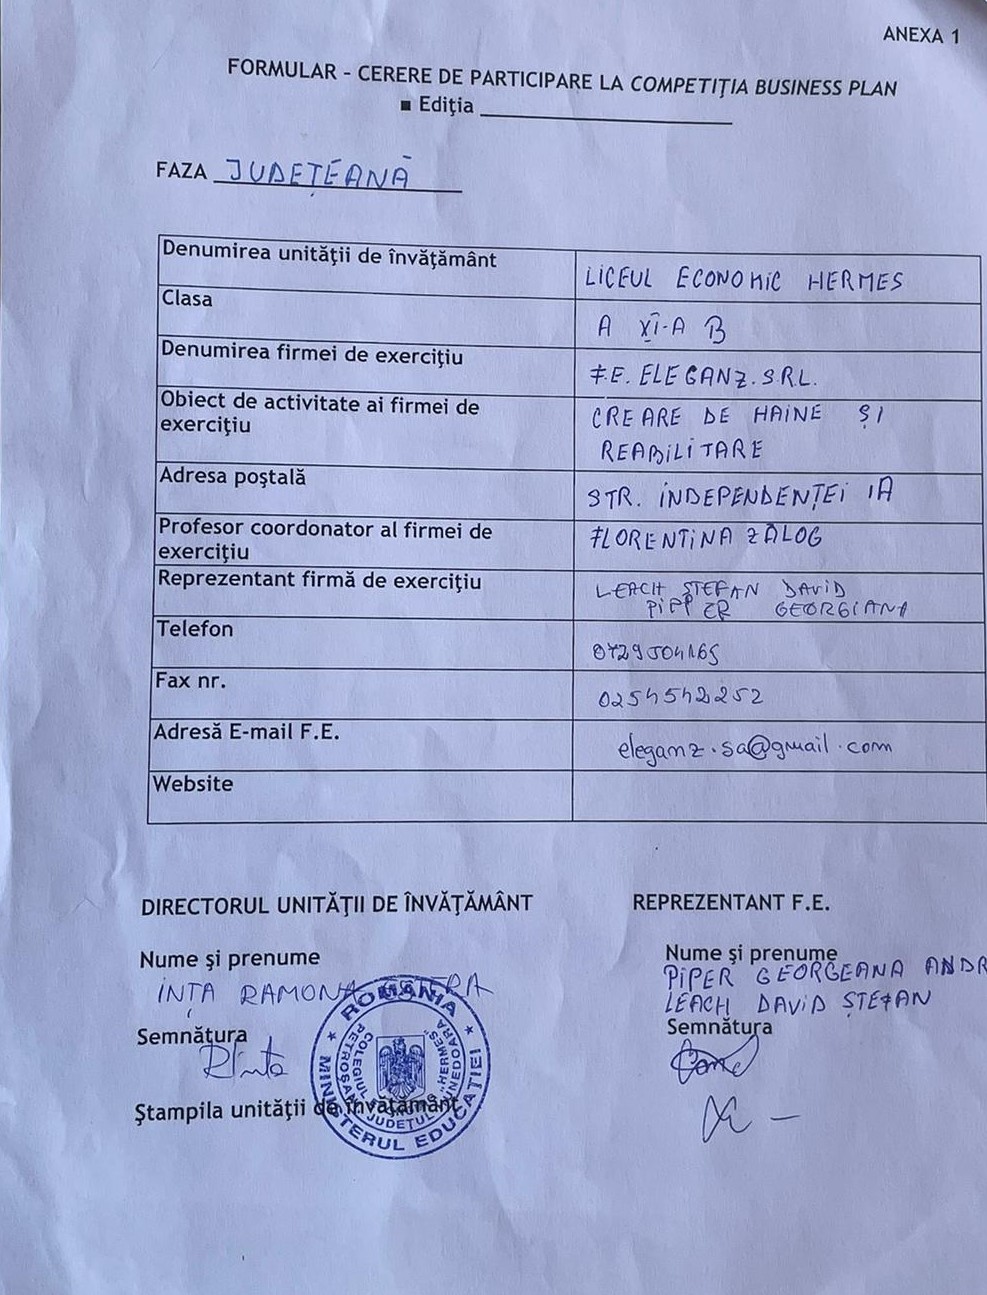 ANEXA 1
FORMULAR - CERERE DE PARTICIPARE LA COMPETIŢIA BUSINESS PLAN
▪ Ediţia
FAZA JUDEȚEANĂ
Denumirea unităţii de învăţământ LICEUL ECONOMIC HERMES
Clasa A XI-A B
Denumirea firmei de exerciţiu F.E. ELEGANZ.SRL.
Obiect de activitate ai firmei de exerciţiu CREARE DE HAINE ȘI
REABILITARE
Adresa poştală STR. INDEPENDENȚEI 1A
Profesor coordonator al firmei de exerciţiu FLORENTINA ZALOG
Reprezentant firmă de exerciţiu LEACH ȘTEFAN DAVID
PIPER GEORGIANA
Telefon 0729504165
Fax nr. 0254542252
Adresă E-mail F.E. eleganz.sa@gmail.com
Website
DIRECTORUL UNITĂŢII DE ÎNVĂŢĂMÂNT
Nume şi prenume
INȚA RAMONA
Semnătura
Ştampila unităţii de învăţământ
ROMÂNIA
MINISTERUL EDUCAȚIEI
COLEGIUL "HERMES"
PETROȘANI JUDEȚUL HUNEDOARA
REPREZENTANT F.E.
Nume şi prenume
PIPER GEORGEANA ANDR
LEACH DAVID ȘTEFAN
Semnătura